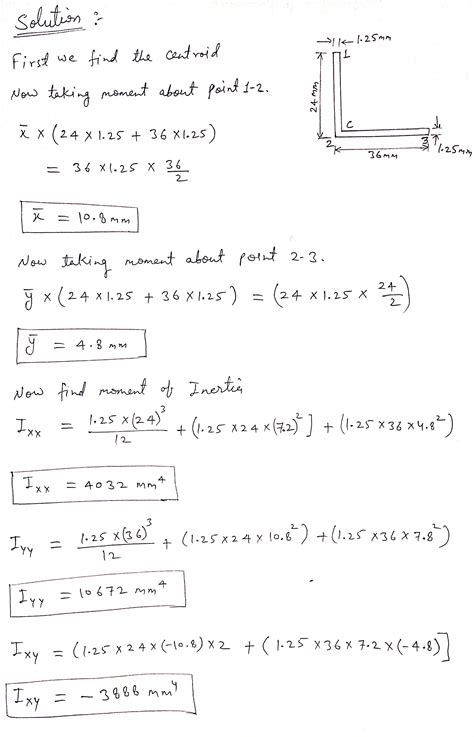 Solution :-
First we find the centroid
Now taking moment about point 1-2.
x̄ × (24 × 1.25 + 36 × 1.25)
= 36 × 1.25 × 36/2
x̄ = 10.8 mm
→||← 1.25mm
1
24 mm
C
2
3
36mm
1.25mm
Now taking moment about point 2-3.
ȳ × (24 × 1.25 + 36 × 1.25) = (24 × 1.25 × 24/2)
ȳ = 4.8 mm
Now find moment of Inertia
Ixx = 1.25 × (24)³/12 + (1.25 × 24 × (7.2)²] + (1.25 × 36 × 4.8²)
Ixx = 4032 mm⁴
Iyy = 1.25 × (36)³/12 + (1.25 × 24 × 10.8²) + (1.25 × 36 × 7.8²)
Iyy = 10672 mm⁴
Ixy = (1.25 × 24 × (-10.8) × 2 + (1.25 × 36 × 7.2 × (-4.8)]
Ixy = - 3888 mm⁴